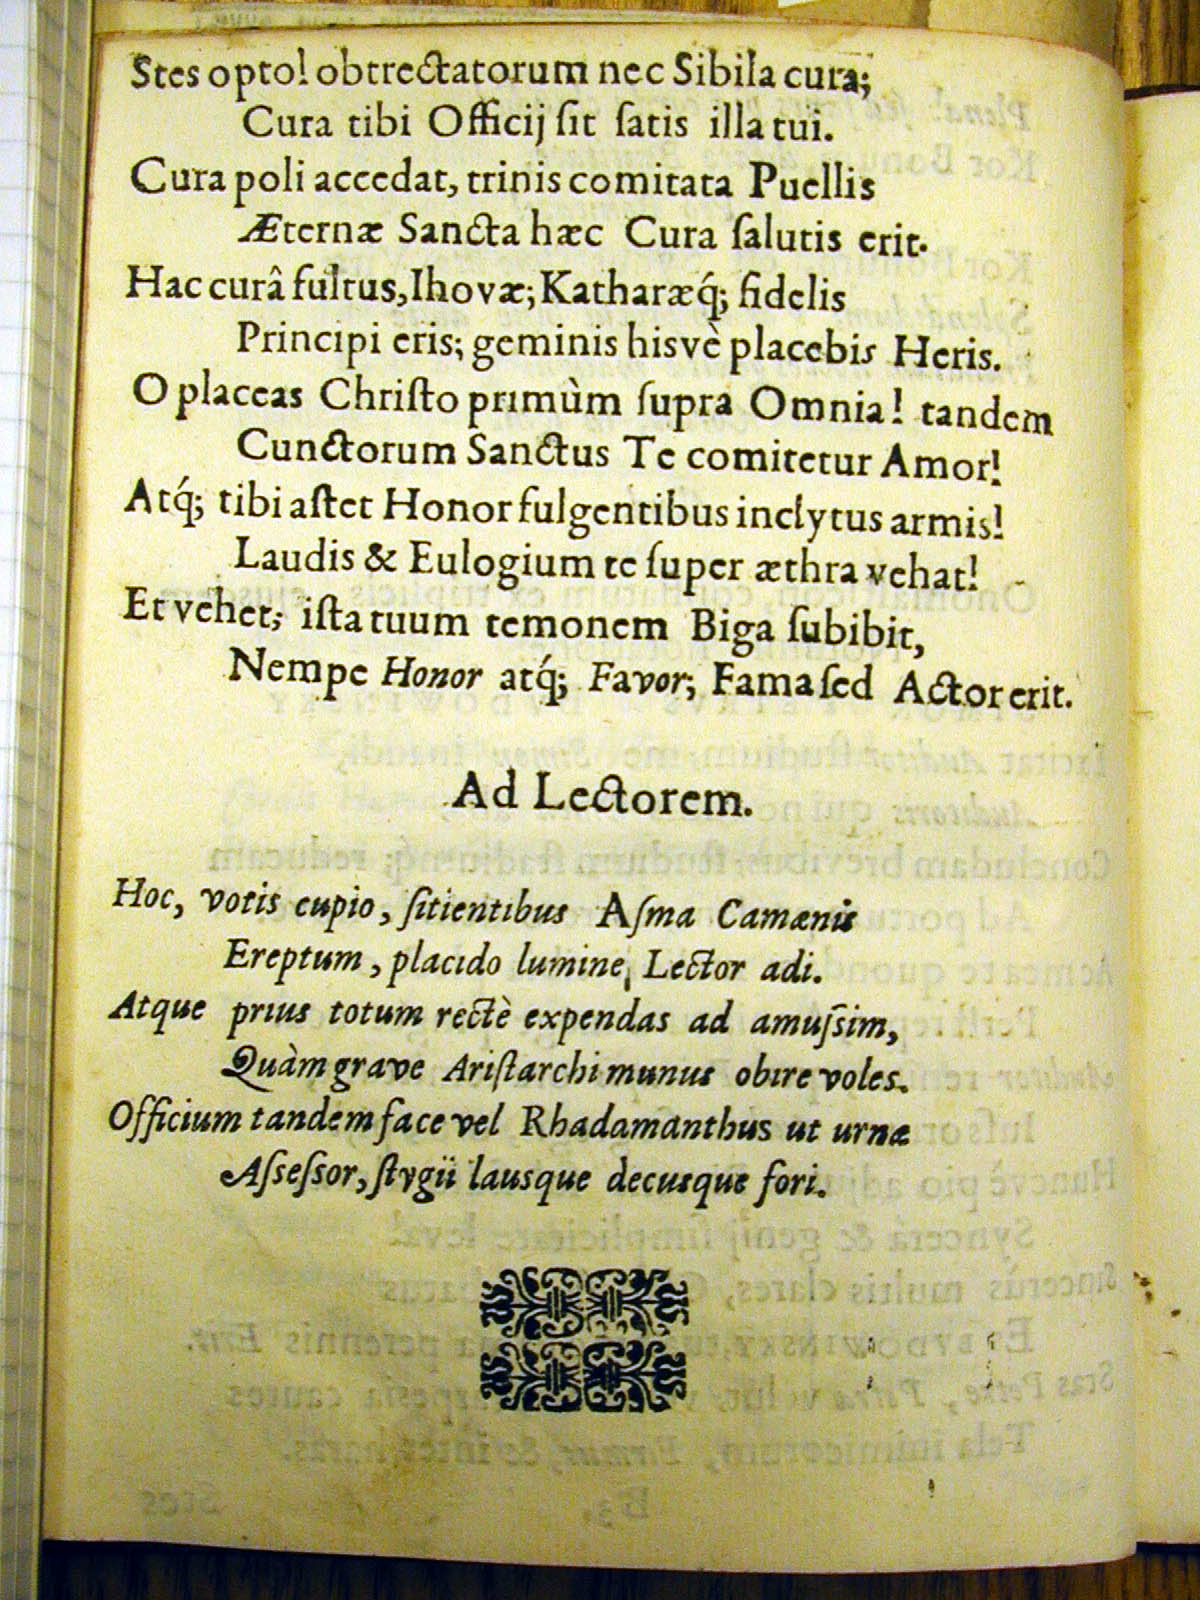 Stes opto! obtrectatorum nec Sibila cura;
Cura tibi Officij ſit ſatis illa tui.
Cura poli accedat, trinis comitata Puellis
Æternæ Sancta hæc Cura ſalutis erit.
Hac curâ fultus, Ihovæ; Katharæq́; fidelis
Principi eris; geminis hisvè placebis Heris.
O placeas Chriſto primùm ſupra Omnia! tandem
Cunctorum Sanctus Te comitetur Amor!
Atq́; tibi aſtet Honor fulgentibus inclytus armis!
Laudis & Eulogium te ſuper æthra vehat!
Et vehet; iſta tuum temonem Biga ſubibit,
Nempe Honor atq́; Favor; Fama ſed Actor erit.
Ad Lectorem.
Hoc, votis cupio, ſitientibus Aſma Camænis
Ereptum, placido lumine, Lector adi.
Atque prius totum rectè expendas ad amuſsim,
Quàm grave Ariſtarchi munus obire voles.
Officium tandem face vel Rhadamanthus ut urnæ
Aſseſsor, ſtygii lausque decusque fori.